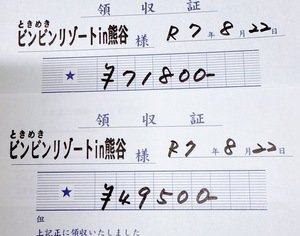 領収証
ときめき
ビンビンリゾートin熊谷 様 R7年8月22日
★ ¥71800-
領収証
ときめき
ビンビンリゾートin熊谷 様 R7年8月22日
★ ¥49500-
但
上記正に領収いたしました